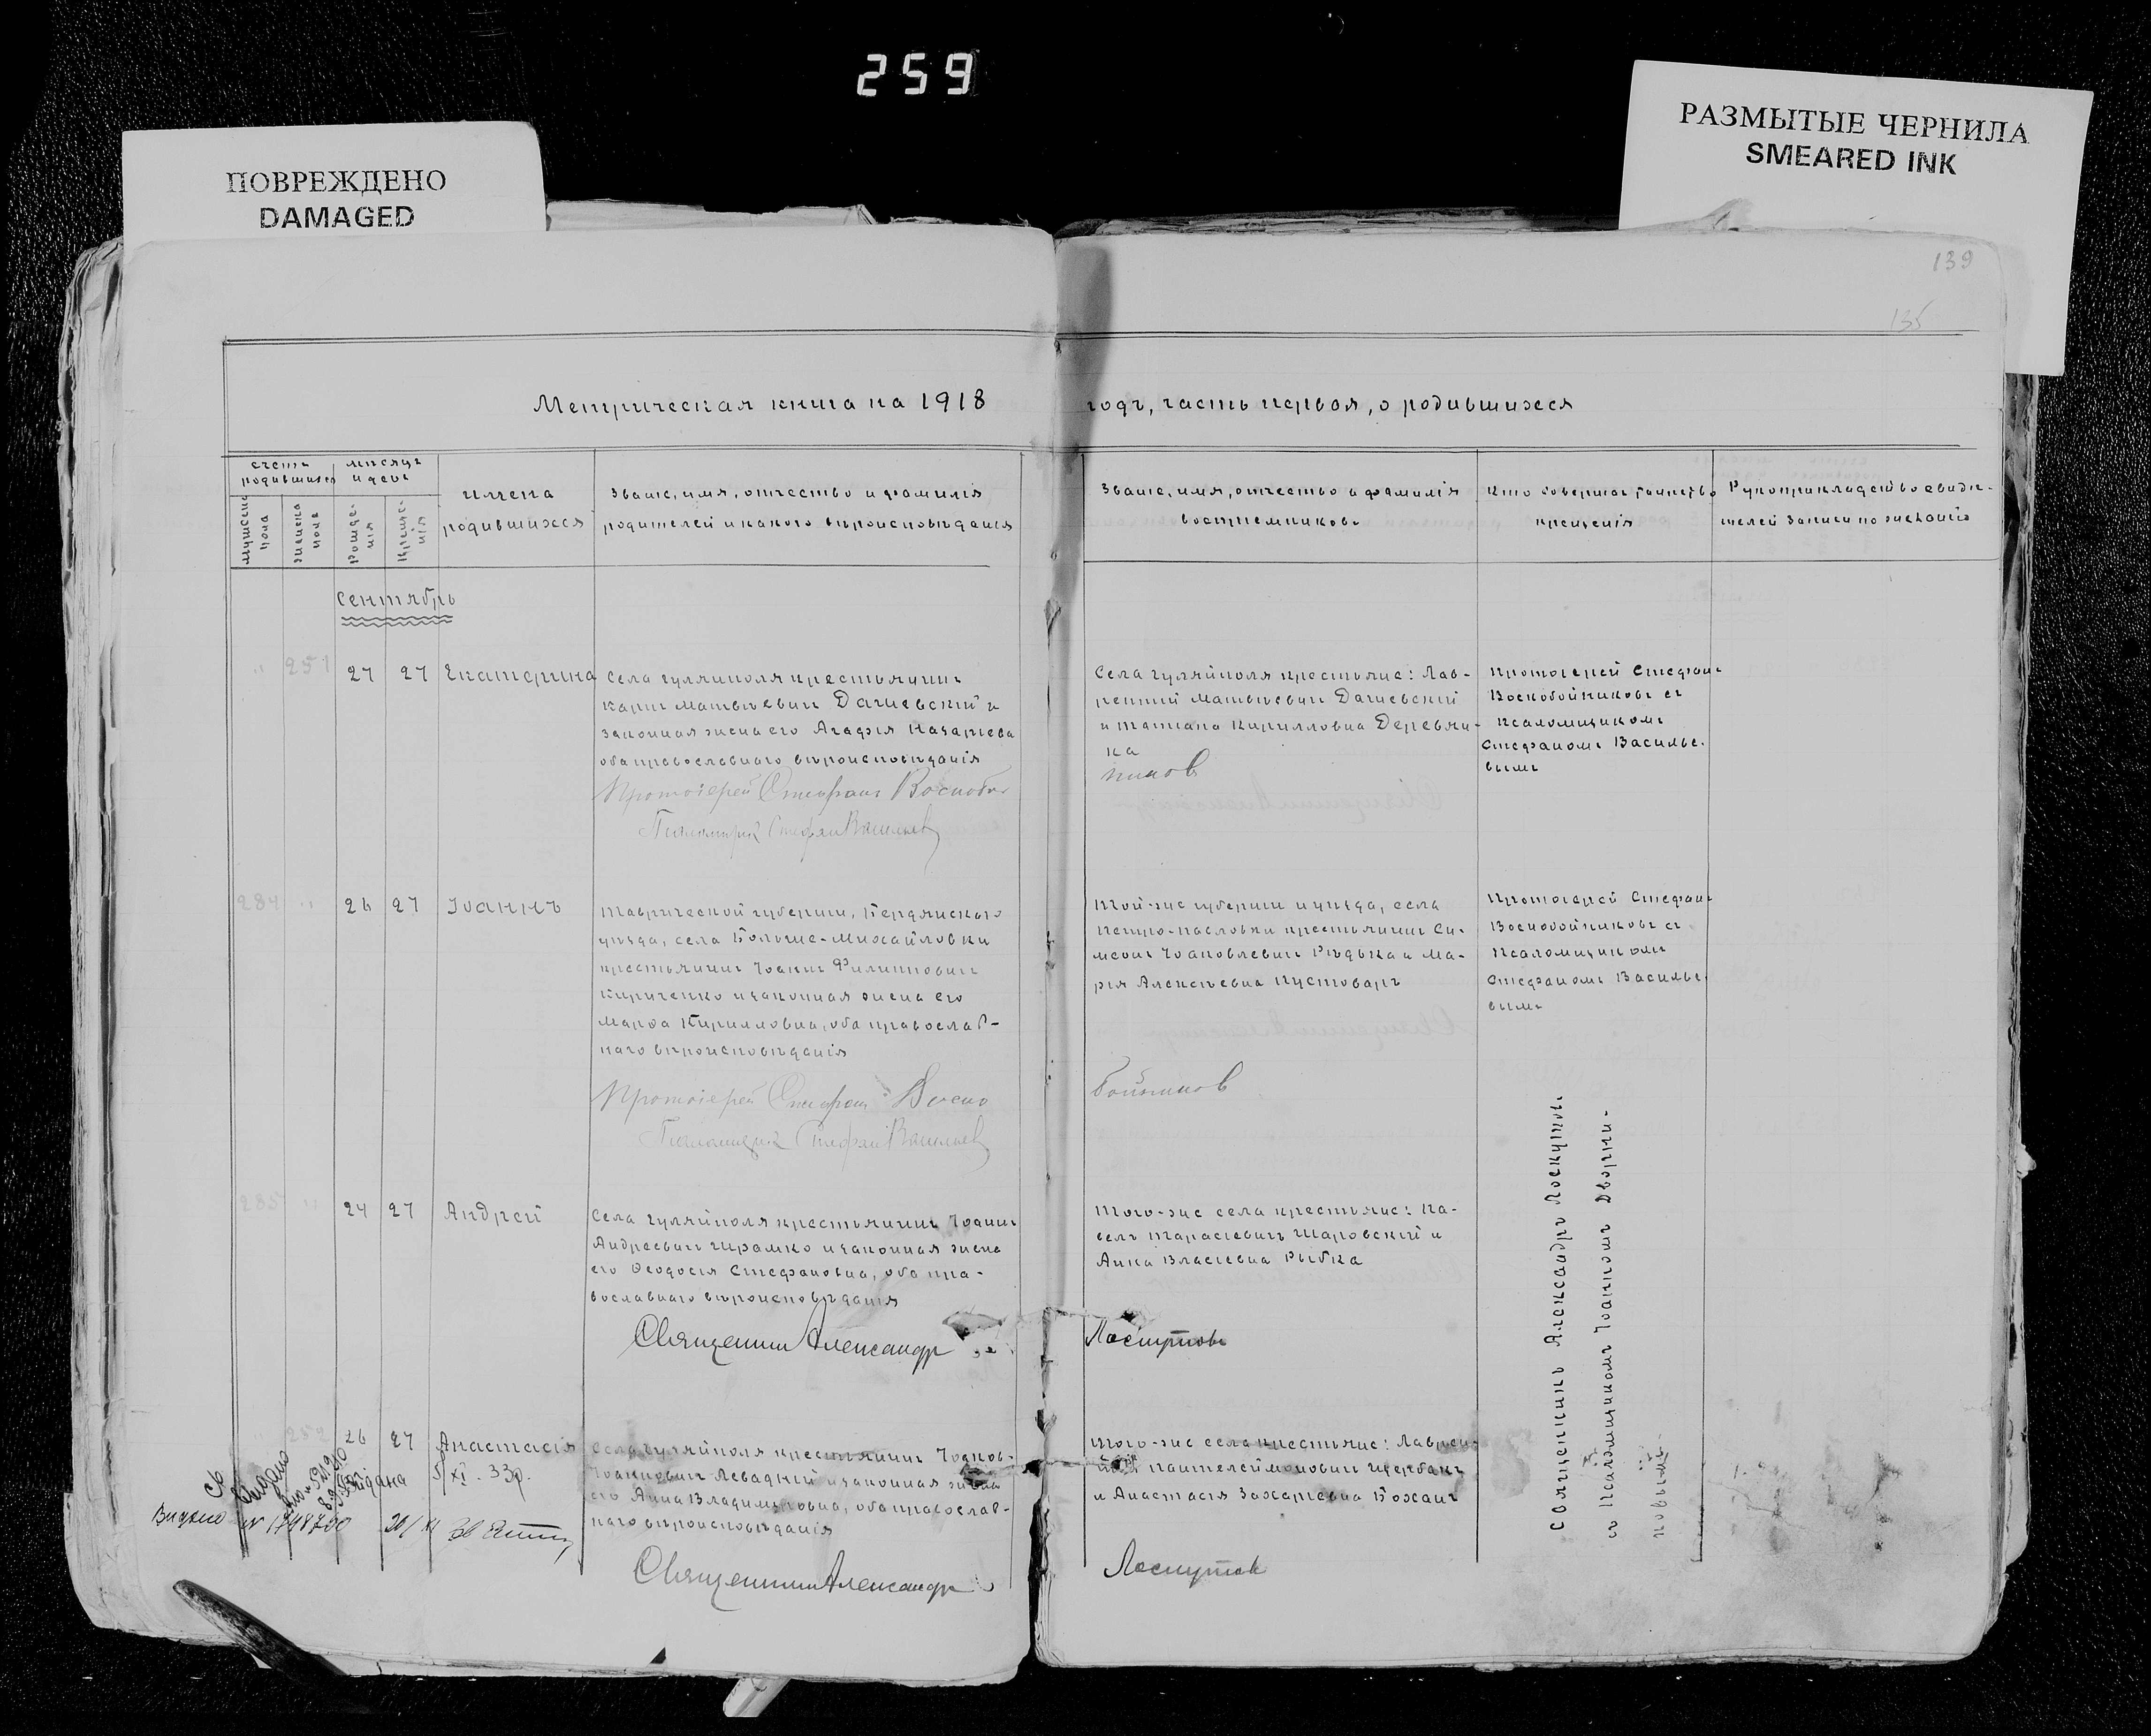 259
ПОВРЕЖДЕНО
DAMAGED
РАЗМЫТЫЕ ЧЕРНИЛА
SMEARED INK
139
135
Метрическая книга на 1918 годъ, часть первая, о родившихся
счетъ родившихся
мѣсяцъ и день
мужеска пола
женска пола
рожде-нія
креще-нія
имена
родившихся
Званіе, имя, отчество и фамилія
родителей и какого вѣроисповѣданія
Званіе, имя, отчество и фамилія
воспріемниковъ
Кто совершал таинство
крещенія
Рукоприкладство свидѣ-
телей записи по желанію
Сентябрь
251 27 27 Екатерина
Села Гуляйполя крестьянинъ
Карпъ Матвѣевичъ Дачевскій и
законная жена его Агафія Назаріева
оба православнаго вѣроисповѣданія
Протоіерей Стефанъ Воскобой
Псаломщик Стефан Васильев
Села Гуляйполя крестьяне: Лав-
рентій Матвѣевичъ Дачевскій
и Татіана Кирилловна Деревян-
ка
ников
Протоіерей Стефанъ
Воскобойниковъ съ
псаломщикомъ
Стефаномъ Василье-
вымъ
284 26 27 Іоаннъ
Таврической губерніи, Бердянскаго
уѣзда, села Больше-Михайловки
крестьянинъ Іоаннъ Филипповичъ
Кириченко и законная жена его
Марѳа Кирилловна, оба православ-
наго вѣроисповѣданія
Протоіерей Стефанъ Воско
Псаломщик Стефан Васильев
Той-же губерніи и уѣзда, села
Петро-Павловки крестьянинъ Си-
меонъ Іоаковлевичъ Рудька и Ма-
рія Алексѣевна Пустоваръ
бойников
Протоіерей Стефанъ
Воскобойниковъ съ
Псаломщикомъ
Стефаномъ Василье-
вымъ
285 24 27 Андрей
Села Гуляйполя крестьянинъ Іоаннъ
Андреевичъ Шрамко и законная жена
его Ѳеодосія Стефановна, оба пра-
вославнаго вѣроисповѣданія
Священникъ Александръ
Того-же села крестьяне: Па-
велъ Тарасіевичъ Шаровскій и
Анна Власіевна Рыбка
Лоскутовъ
26 27 Анастасія
Села Гуляйполя крестьянинъ Іоаков-
Іоанновичъ Левадній и законная жена
его Анна Владиміровна, оба православ-
наго вѣроисповѣданія
Священникъ Александръ
Того-же села крестьяне: Лаврен-
тій Пантелеймоновичъ Щербакъ
и Анастасія Захаріевна Божанъ
Лоскутов
Священникъ Александръ Лоскутовъ
съ Псаломщикомъ Іоанномъ Дворни-
ковымъ
Видано
5/XI. 33р.